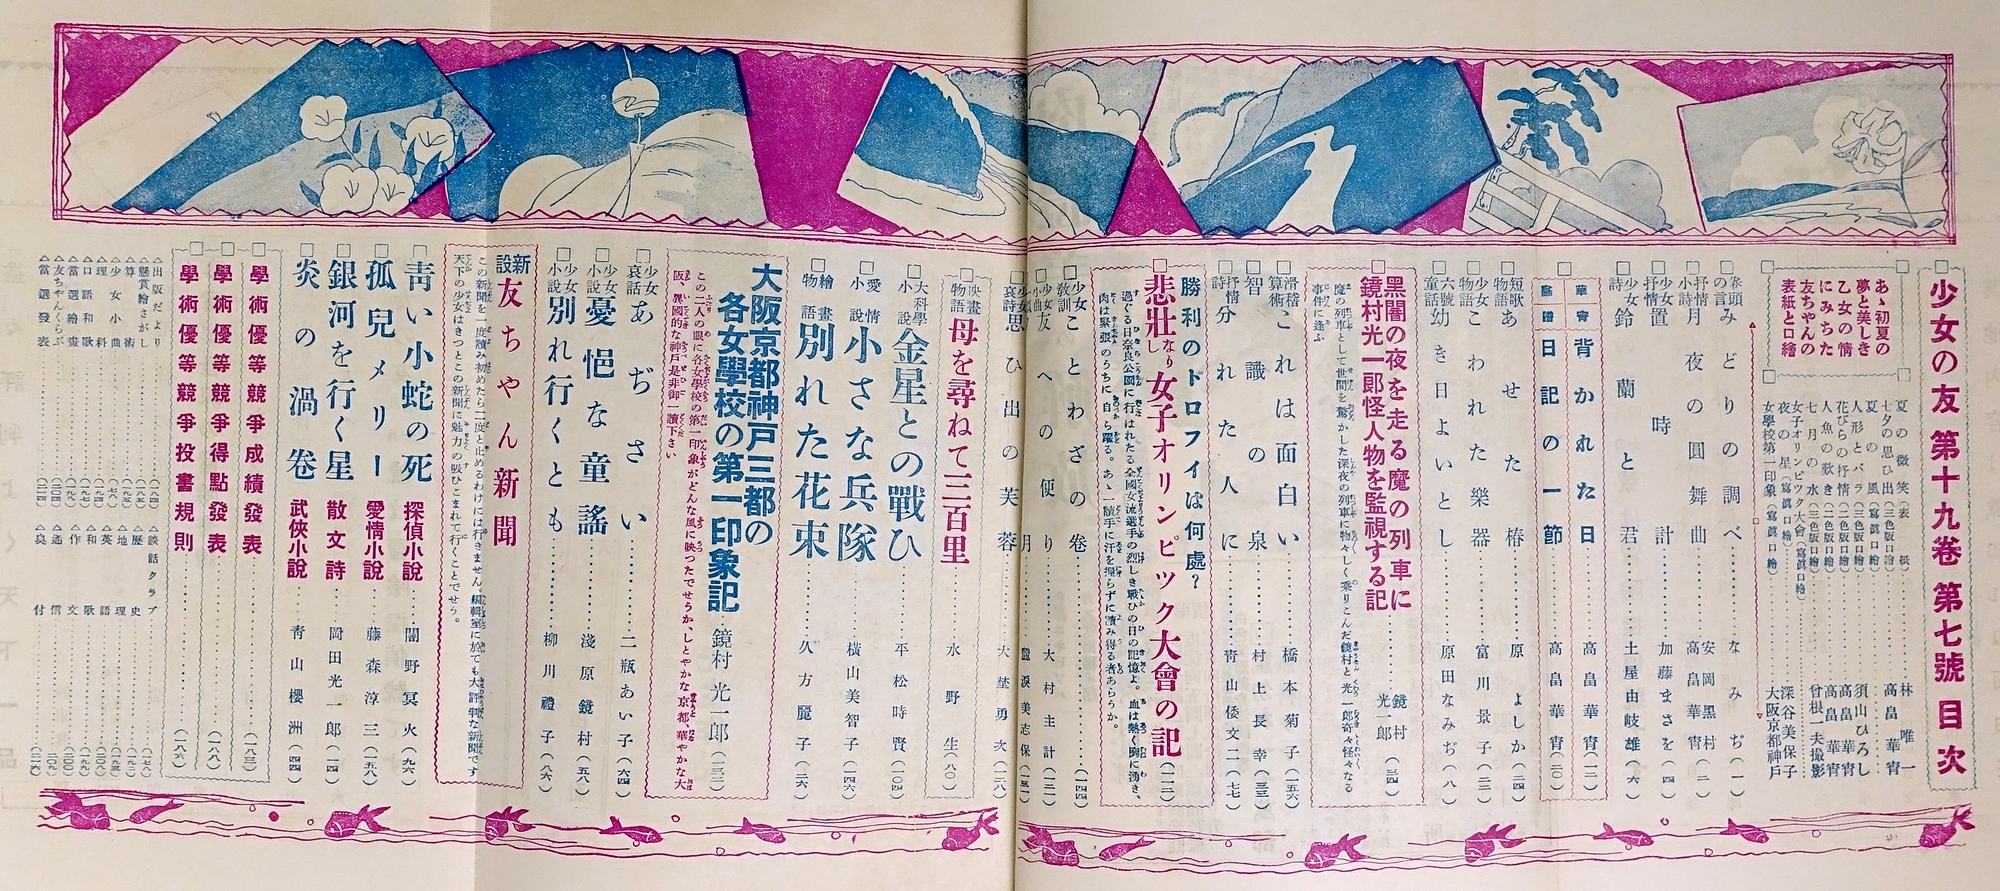 少女の友 第十九卷 第七號 目次
あゝ初夏の
夢と美しき
乙女の情
にみちた
友ちやんの
表紙と口繪
夏の微笑(表紙)…林唯一
七夕の思ひ出(三色版口繪)…高畠華宵
夏の風(寫眞口繪)
人形とバラ(三色版口繪)…須山ひろし
花びらの抒情(二色版口繪)…高畠華宵
人魚の歎き(二色版口繪)…高畠華宵
七月の水(寫眞口繪)…曾根一夫撮影
女子オリンピツク大會(寫眞口繪)
夜の星(寫眞口繪)…深谷美保子
女學校第一印象(寫眞口繪)…大阪京都神戸
卷頭の言 みどりの調べ…なみぢ(一)
抒情小詩 月夜の圓舞曲…安岡黑村 高畠華宵(二)
少女抒情 置時計…加藤まさを(四)
少女詩 鈴蘭と君…土屋由岐雄(六)
華宵 背かれた日…高畠華宵(三)
畫譜 日記の一節…高畠華宵(二〇)
短歌物語 あせた椿…原よしか(二四)
少女物語 こわれた樂器…富川景子(三二)
六號童話 幼き日よいとし…原田なみぢ(八)
黑闇の夜を走る魔の列車に
鏡村光一郎怪人物を監視する記…鏡村光一郎(三四)
魔の列車として世間を驚かした深夜の列車に物々しく乘りこんだ鏡村と光一郎奇々怪々なる
事件に逢ふ
滑稽算術 これは面白い…橋本菊子(一五六)
智識の泉…村上長幸(三三)
抒情詩 分れた人に…靑山倭文二(一七七)
勝利のトロフイは何處?
悲壯なり女子オリンピツク大會の記…(一一二)
過ぐる日奈良公園に行はれたる全國女流選手の烈しき戰ひの日の記憶よ。血は熱く胸に湧き、
肉は緊張のうちに自ら躍る。あゝ一讀手に汗を握らずに讀み得る者あらうか。
少女敎訓 ことわざの卷…(一四四)
少女小曲 友への便り…大村主計(一三一)
少女哀詩 思ひ出の芙蓉…大埜勇次(一二八)
映畫物語 母を尋ねて三百里…水野生(八〇)
大科學小說 金星との戰ひ…平松時賢(一〇四)
愛情小說 小さな兵隊…橫山美智子(一四六)
繪畫物語 別れた花束…久方麗子(二六)
大阪京都神戸三都の
各女學校の第一印象記…鏡村光一郎(一三二)
この二人の眼に各女學校の第一印象がどんな風に映つたでせうか、しとやかな京都、華やかな大
阪、異國的な神戸是非御一讀下さい
少女哀話 あぢさい…二瓶あい子(六四)
少女小說 憂悒な童謠…淺原鏡村(五八)
少女小說 別れ行くとも…柳川禮子(八六)
新設 友ちやん新聞
この新聞を一度讀み初めたら二度と止めるわけには行きません。編輯室に於ても大評判な新聞です
天下の少女はきつとこの新聞に魅力の吸ひこまれて行くことでせう。
靑い小蛇の死 探偵小說…闇野冥火(九六)
孤兒メリー 愛情小說…藤森淳三(一五八)
銀河を行く星 散文詩…岡田光一郎(一四)
炎の渦卷 武俠小說…靑山櫻洲(四四)
學術優等競爭成績發表…(一八三)
學術優等競爭得點發表…(一八八)
學術優等競爭投書規則…(一八六)
△出版だより…(一八四)
△懸賞繪さがし…(一八五)
△算術…(一九五)
△少女小曲…(一七八)
△理科…(一九四)
△口語和歌…(一九七)
△當選繪畫…(一九八)
△友ちやんくらぶ…(二〇四)
△當選發表…(二一四)
△談話クラブ…(一七八)
△歷史…(一九二)
△地理…(一九三)
△英語…
△和歌…(一九九)
△作文…(二〇〇)
△通信…(二〇九)
△奧付…(二一六)